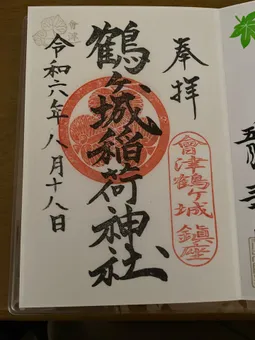 奉拝
會津鶴ヶ城 鎮座
鶴ヶ城稲荷神社
令和六年八月十八日
會津